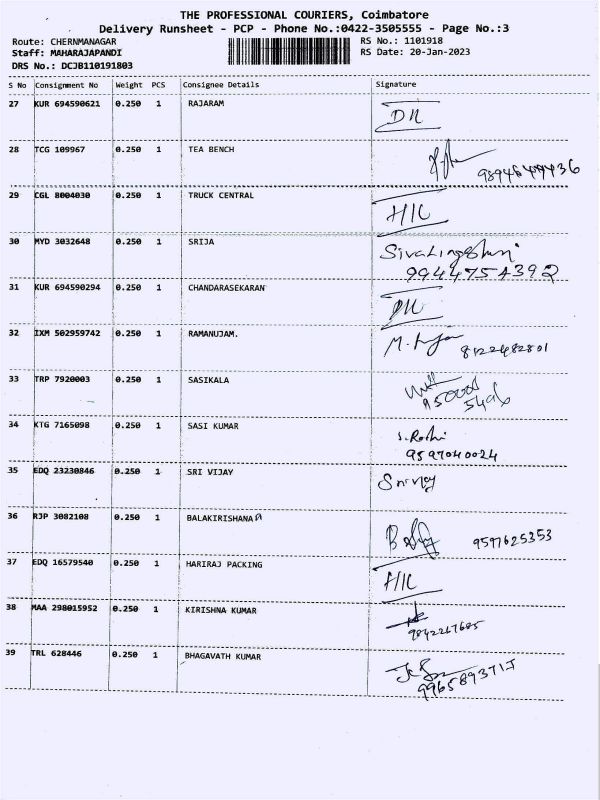 THE PROFESSIONAL COURIERS, Coimbatore
Delivery Runsheet - PCP - Phone No.:0422-3505555 - Page No.:3
Route: CHERNMANAGAR
RS No.: 1101918
Staff: MAHARAJAPANDI
RS Date: 20-Jan-2023
DRS No.: DCJB110191803
S No Consignment No Weight PCS Consignee Details Signature
27 KUR 694590621 0.250 1 RAJARAM
28 TCG 109967 0.250 1 TEA BENCH
29 CGL 8004030 0.250 1 TRUCK CENTRAL H/C
30 MYD 3032648 0.250 1 SRIJA
9944754392
31 KUR 694590294 0.250 1 CHANDARASEKARAN
32 IXM 502959742 0.250 1 RAMANUJAM. 8122482801
33 TRP 7920003 0.250 1 SASIKALA
34 KTG 7165098 0.250 1 SASI KUMAR
9597040024
35 EDQ 23230846 0.250 1 SRI VIJAY
36 RJP 3082108 0.250 1 BALAKIRISHANA 9597625353
37 EDQ 16579540 0.250 1 HARIRAJ PACKING H/C
38 MAA 298015952 0.250 1 KIRISHNA KUMAR
39 TRL 628446 0.250 1 BHAGAVATH KUMAR